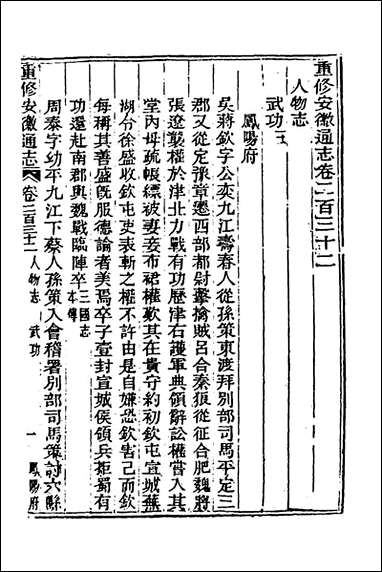 重修安徽通志卷二百三十二
人物志
武功三
鳳陽府
吳蔣欽字公奕九江壽春人從孫策東渡拜別部司馬平定三
郡又從定豫章遷西部都尉擊擒賊呂合秦狼從征合肥魏將
張遼襲權於津北力戰有功歷津右護軍典領辭訟權嘗入其
堂內母疏帳縹被妻妾布裙權歎其在貴守約初欽屯宣城蕪
湖令徐盛收欽屯吏表斬之權不許由是自嫌恐欽害己而欽
每稱其善盛旣服德論者美焉卒子壹封宣城侯領兵拒蜀有
功還赴南郡與魏戰臨陣卒三國志本傳
周泰字幼平九江下蔡人孫策入會稽署別部司馬策討六縣
重修安徽通志 卷二百三十二 人物志 武功 一 鳳陽府